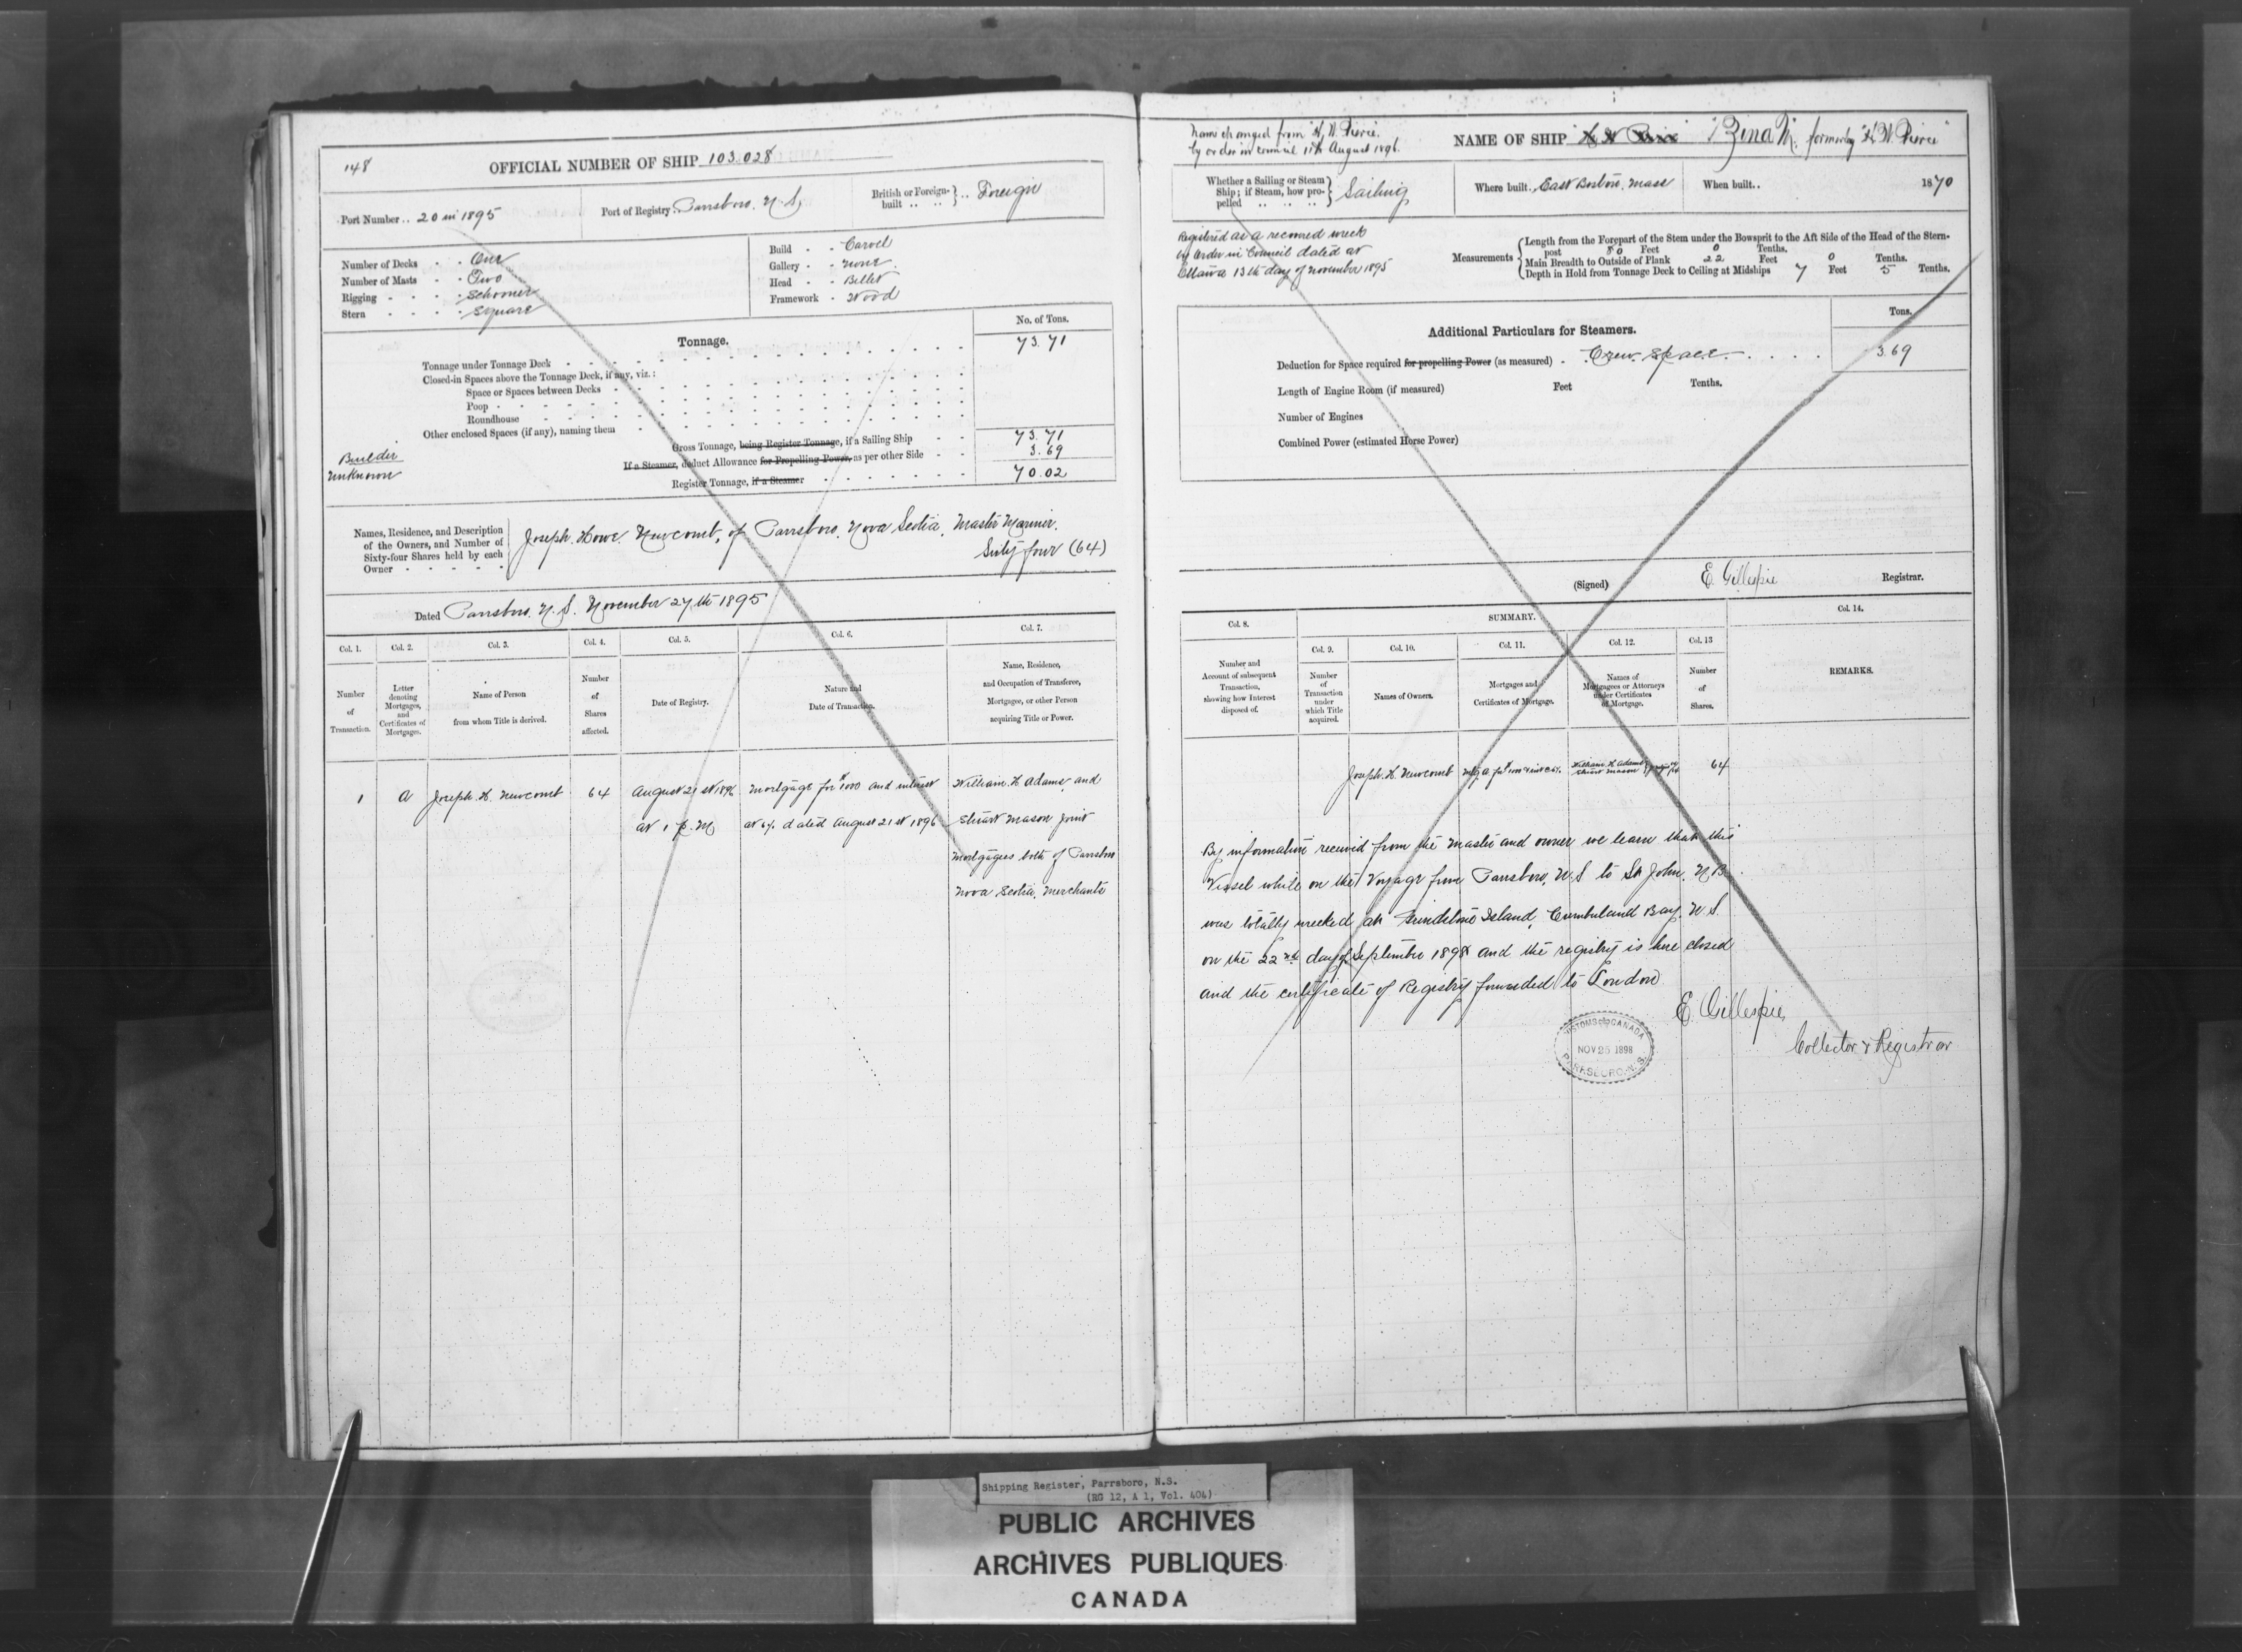 148
OFFICIAL NUMBER OF SHIP 103.028
Port Number .. 20 in 1895
Port of Registry Parrsboro. N. S.
British or Foreign-built .. .. } .. Foreign
Number of Decks - - One
Number of Masts - - Two
Rigging - - - - Schooner
Stern - - - - Square
Build - - Carvel
Gallery - - None
Head - - Billet
Framework - Wood
Tonnage.
No. of Tons.
Tonnage under Tonnage Deck
73.71
Closed-in Spaces above the Tonnage Deck, if any, viz.:
Space or Spaces between Decks
Poop
Roundhouse
Other enclosed Spaces (if any), naming them
Gross Tonnage, being Register Tonnage, if a Sailing Ship
73.71
If a Steamer, deduct Allowance for Propelling Power, as per other Side
3.69
Register Tonnage, if a Steamer
70.02
Builder
Unknown
Names, Residence, and Description
of the Owners, and Number of
Sixty-four Shares held by each
Owner
Joseph Howe Newcomb, of Parrsboro, Nova Scotia, Master Mariner.
Sixty four (64)
Dated Parrsboro. N. S. November 27th 1895
Col. 1.
Col. 2.
Col. 3.
Col. 4.
Col. 5.
Col. 6.
Col. 7.
Number of Transaction.
Letter denoting Mortgages, and Certificates of Mortgages.
Name of Person from whom Title is derived.
Number of Shares affected.
Date of Registry.
Nature and Date of Transaction.
Name, Residence, and Occupation of Transferee, Mortgagee, or other Person acquiring Title or Power.
1 A Joseph. H. Newcomb 64 August 21st 1896 Mortgage for $1000 and interest William. H Adams, and
at 1 p. M at 6% dated August 21st 1896 Stuart Mason Joint
Mortgagees both of Parrsboro
Nova Scotia, Merchants
Name changed from "H. W. Pierce.
by order in council 11th August 1896.
NAME OF SHIP "Zina M. formerly "H. W. Pierce"
Whether a Sailing or Steam
Ship; if Steam, how pro-
pelled .. .. .. } Sailing
Where built.. East Boston. Mass
When built.. 1870
Registered as a recovered wreck
by Order in Council dated at
Ottawa 13th day of November 1895
Measurements
Length from the Forepart of the Stem under the Bowsprit to the Aft Side of the Head of the Stern-
post 80 Feet 0 Tenths.
Main Breadth to Outside of Plank 22 Feet 0 Tenths.
Depth in Hold from Tonnage Deck to Ceiling at Midships 7 Feet 5 Tenths.
Additional Particulars for Steamers.
Tons.
Deduction for Space required for propelling Power (as measured) - Crew Space 3.69
Length of Engine Room (if measured) Feet Tenths.
Number of Engines
Combined Power (estimated Horse Power)
(Signed) E. Gillespie Registrar.
Col. 8.
SUMMARY.
Col. 14.
Col. 9.
Col. 10.
Col. 11.
Col. 12.
Col. 13
Number and Account of subsequent Transaction, showing how Interest disposed of.
Number of Transaction under which Title acquired.
Names of Owners.
Mortgages and Certificates of Mortgage.
Names of Mortgagees or Attorneys under Certificates of Mortgage.
Number of Shares.
REMARKS.
Joseph. H. Newcomb William. H Adams Stuart Mason 64
By information received from the Master and owner we learn that this
Vessel while on the Voyage from Parrsboro, N.S to St John, N B.
was totally wrecked at Grindstone Island, Cumberland Bay, N.S.
on the 22nd day of September 1898 and the registry is here closed
and the certificate of Registry forwarded to London
E. Gillespie,
Collector & Registrar
CUSTOMS CANADA
NOV 25 1898
PARRSBORO. N.S.
Shipping Register, Parrsboro, N.S.
(RG 12, A 1, Vol. 404)
PUBLIC ARCHIVES
ARCHIVES PUBLIQUES
CANADA